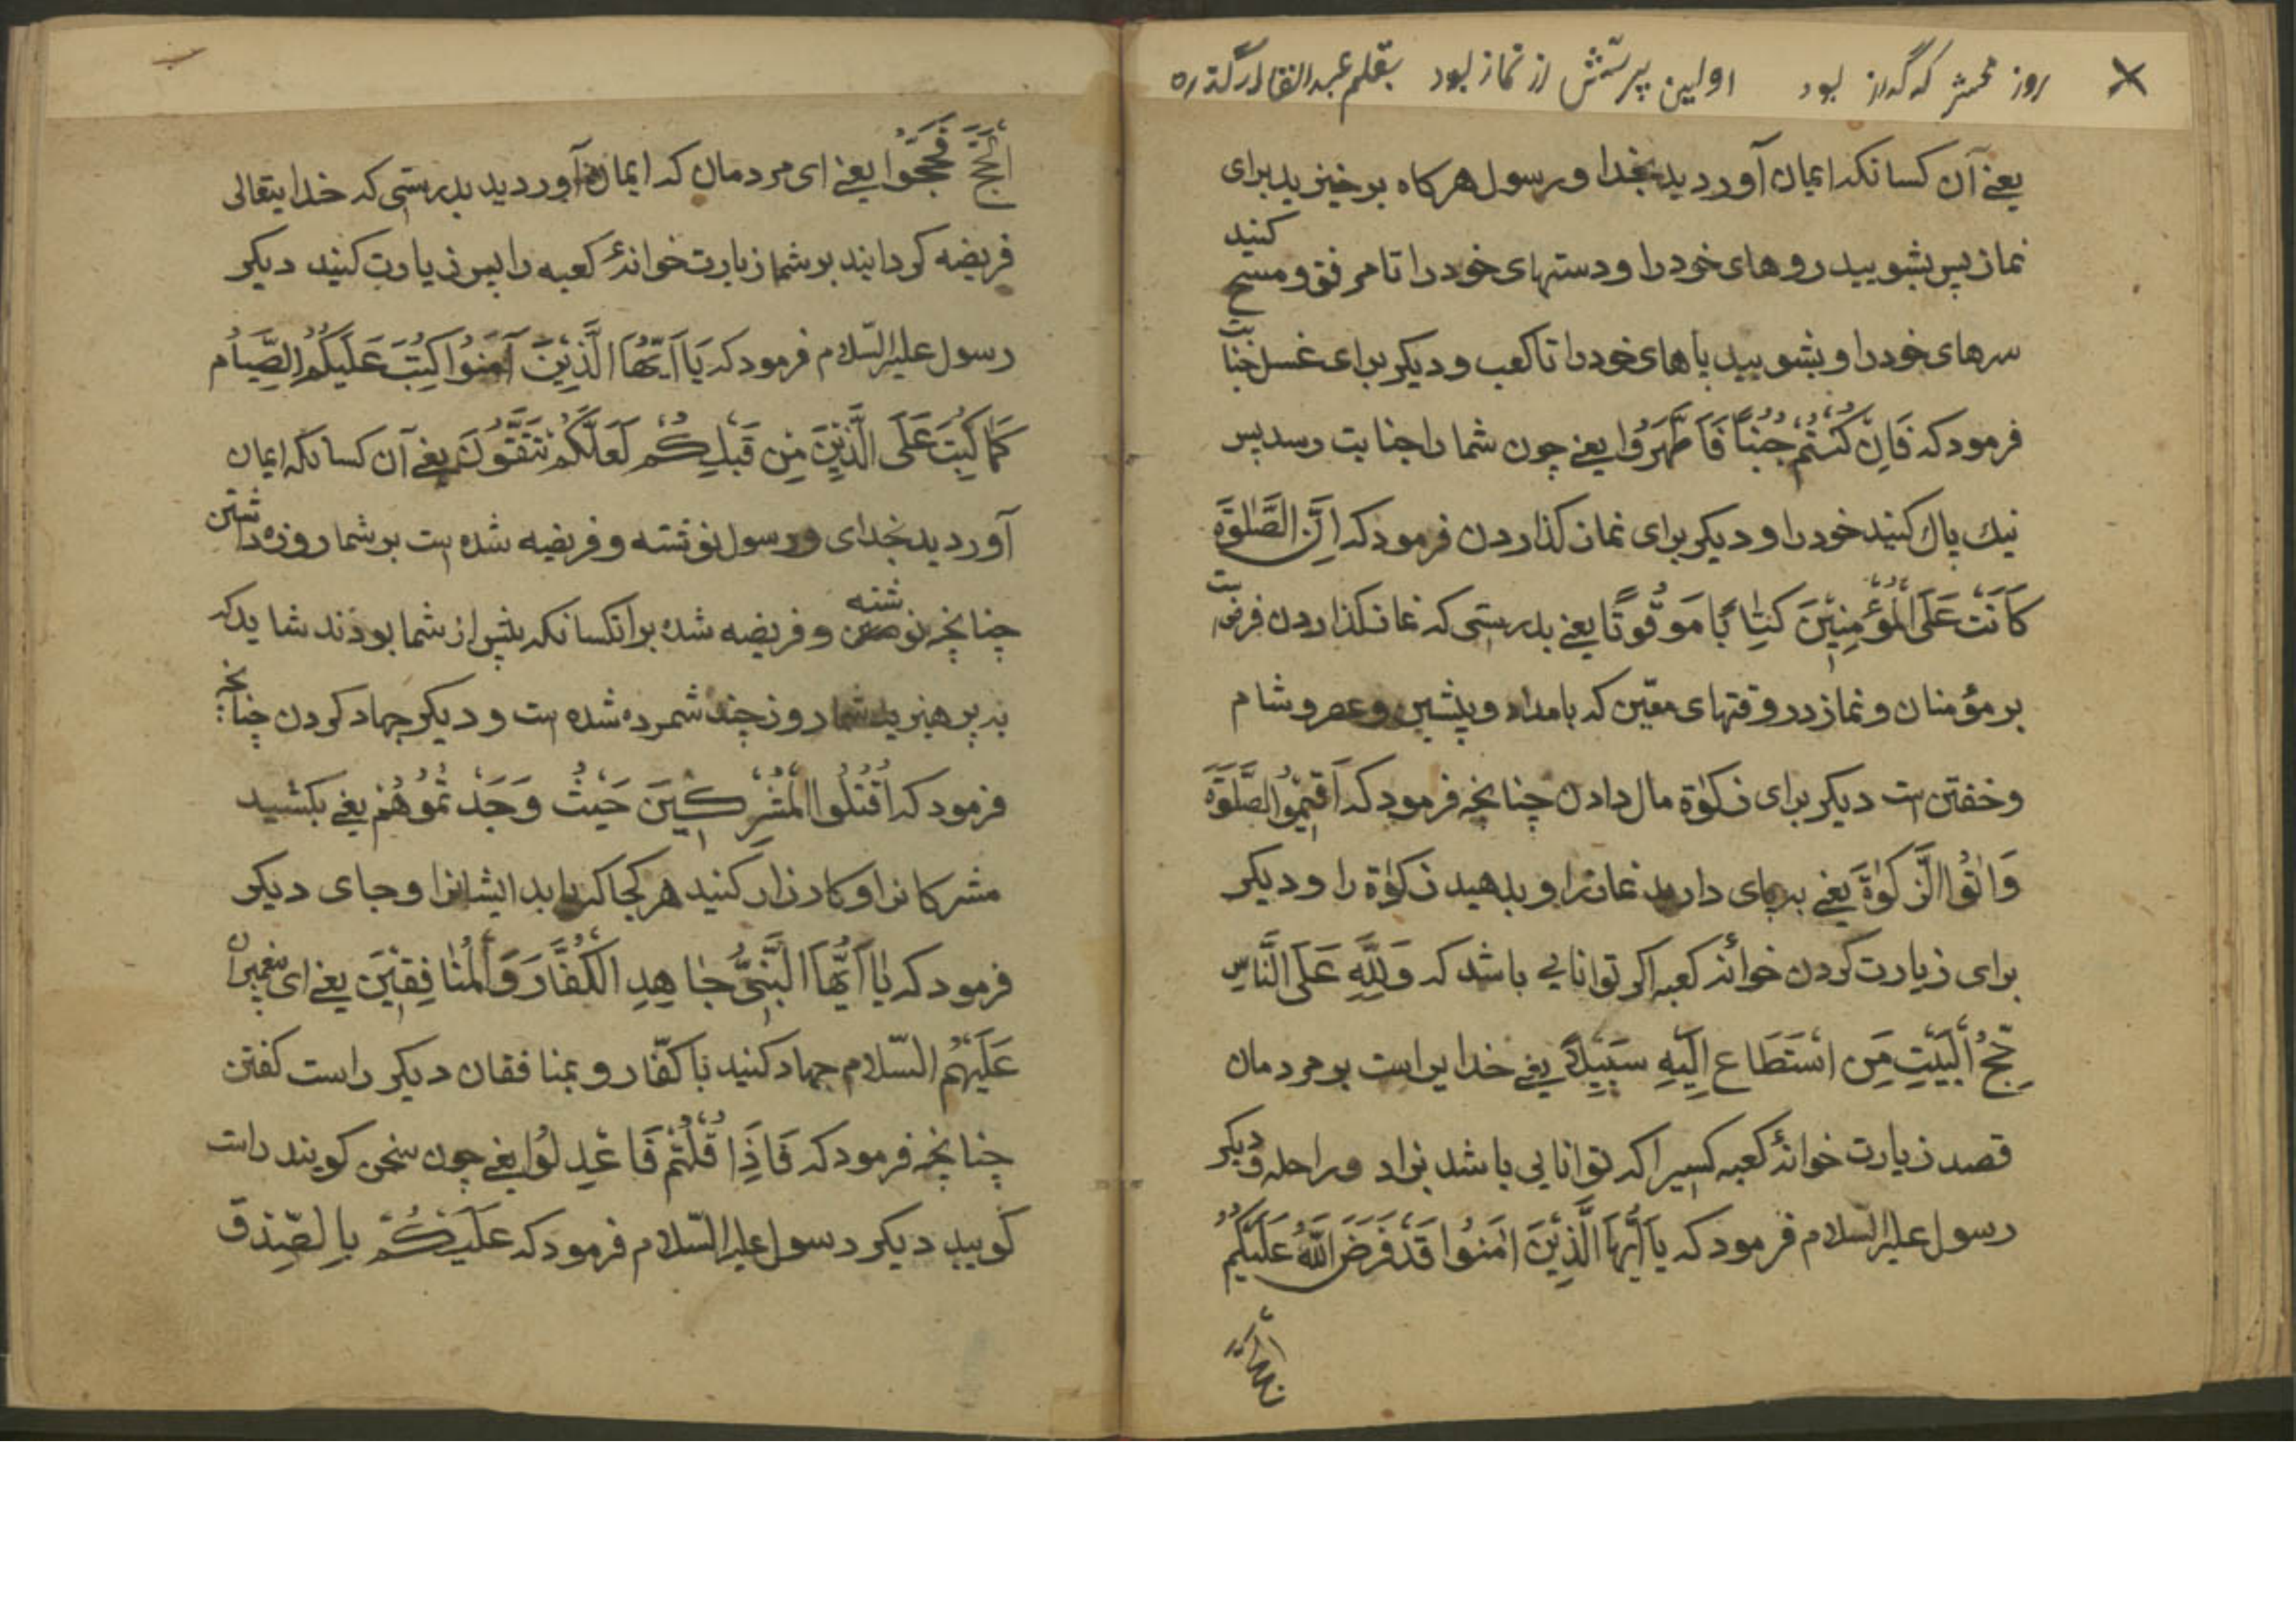 روز محشر که گداز بود اولین پرسش از نماز بود بقلم عبد القادر
یعنے آن کسانکه ایمان آوردید بخدا و رسول هرکاه برخیزید برای
نماز پس بشویید روهای خود را و دستهای خود را تا مرفق و مسح کنید
سرهای خود را و بشویید پاهای خود را تا کعب و دیکر برای غسل جنابت
فرمود که فَاِنْ کُنْتُمْ جُنُبًا فَاطَّهَرُوا یعنے چون شما را جنابت رسد پس
نیك پاك کنید خود را و دیکر برای نماز کذاردن فرمود که اِنَّ الصَّلٰوةَ
کَانَتْ عَلَی الْمُؤْمِنِیْنَ کِتٰابًا مَوْقُوتًا یعنے بدرستی که نماز کذاردن فرض ست
بر مؤمنان و نماز در وقتهای معیّن که بامداد و پیشین و عصر و شام
و خفتن است دیکر برای زکوٰة مال دادن چنانچه فرمود که اَقِیْمُوا الصَّلٰوةَ
وَاٰتُوا الزَّکٰوةَ یعنے برپای دارید نماز را و بدهید زکوٰة را و دیکر
برای زیارت کردن خوانۀ کعبه اکر توانایی باشد که وَلِلّٰهِ عَلَی النَّاسِ
حِجُّ الْبَیْتِ مَنِ اسْتَطَاعَ اِلَیْهِ سَبِیْلًا یعنے خدایراست بر مردمان
قصد زیارت خوانۀ کعبه کسیرا که توانایی باشد بزاد و راحله و دیکر
رسول علیه السّلام فرمود که یَا اَیُّهَا الَّذِیْنَ اٰمَنُوا قَدْ فَرَضَ اللّٰهُ عَلَیْکُمْ
الْحَجَّ
اَلْحَجَّ فَحَجُّوا یعنے ای مردمان که ایمان آوردید بدرستی که خدایتعالی
فریضه کردانید بر شما زیارت خوانۀ کعبه را پس زیارت کنید دیکر
رسول علیه السّلام فرمود که یَا اَیُّهَا الَّذِیْنَ آمَنُوا کُتِبَ عَلَیْکُمُ الصِّیَامُ
کَمَا کُتِبَ عَلَی الَّذِیْنَ مِنْ قَبْلِکُمْ لَعَلَّکُمْ تَتَّقُوْنَ یعنے آن کسانکه ایمان
آوردید بخدای و رسول نوشته و فریضه شده است بر شما روزه داشتن
چنانچه نوشته و فریضه شده بر انکسانکه پیش از شما بودند شاید که
بپرهیزید شما روز چند شمرده شده است و دیکر جهاد کردن چنانچه
فرمود که اُقْتُلُوا الْمُشْرِکِیْنَ حَیْثُ وَجَدْتُمُوهُمْ یعنے بکشید
مشرکانرا و کارزار کنید هر کجا که یابد ایشانرا و جای دیکر
فرمود که یٰا اَیُّهَا النَّبِیُّ جٰاهِدِ الْکُفَّارَ وَالْمُنٰافِقِیْنَ یعنے ای پیغمبران
عَلَیْهِمُ السّلام جهاد کنید با کفّار و بمنافقان دیکر راست کفتن
چنانچه فرمود که فَاِذَا قُلْتُمْ فَاعْدِلُوا یعنے چون سخن کویند راست
کویید دیکر رسول علیه السّلام فرمود که عَلَیْکُمْ بِالصِّدْقِ